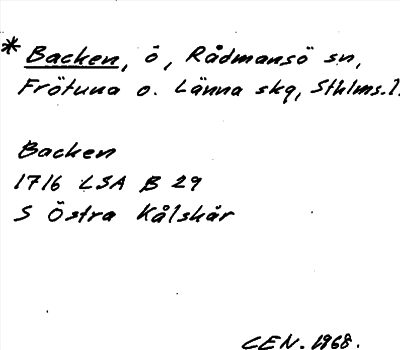 * Backen, ö, Rådmansö sn,
Frötuna o. Länna skg, Sthlms.l.
Backen
1716 LSA B 29
S Östra Kålskär
CEN. 1968.